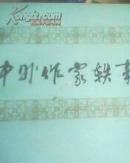 中外作家轶事